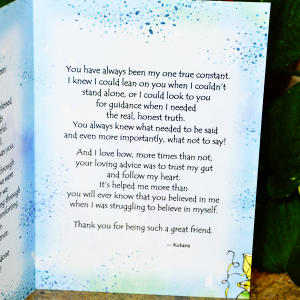 You have always been my one true constant.
I knew I could lean on you when I couldn't
stand alone, or I could look to you
for guidance when I needed
the real, honest truth.
You always knew what needed to be said
and even more importantly, what not to say!
And I love how, more times than not,
your loving advice was to trust my gut
and follow my heart.
It's helped me more than
you will ever know that you believed in me
when I was struggling to believe in myself.
Thank you for being such a great friend.
— Kokana